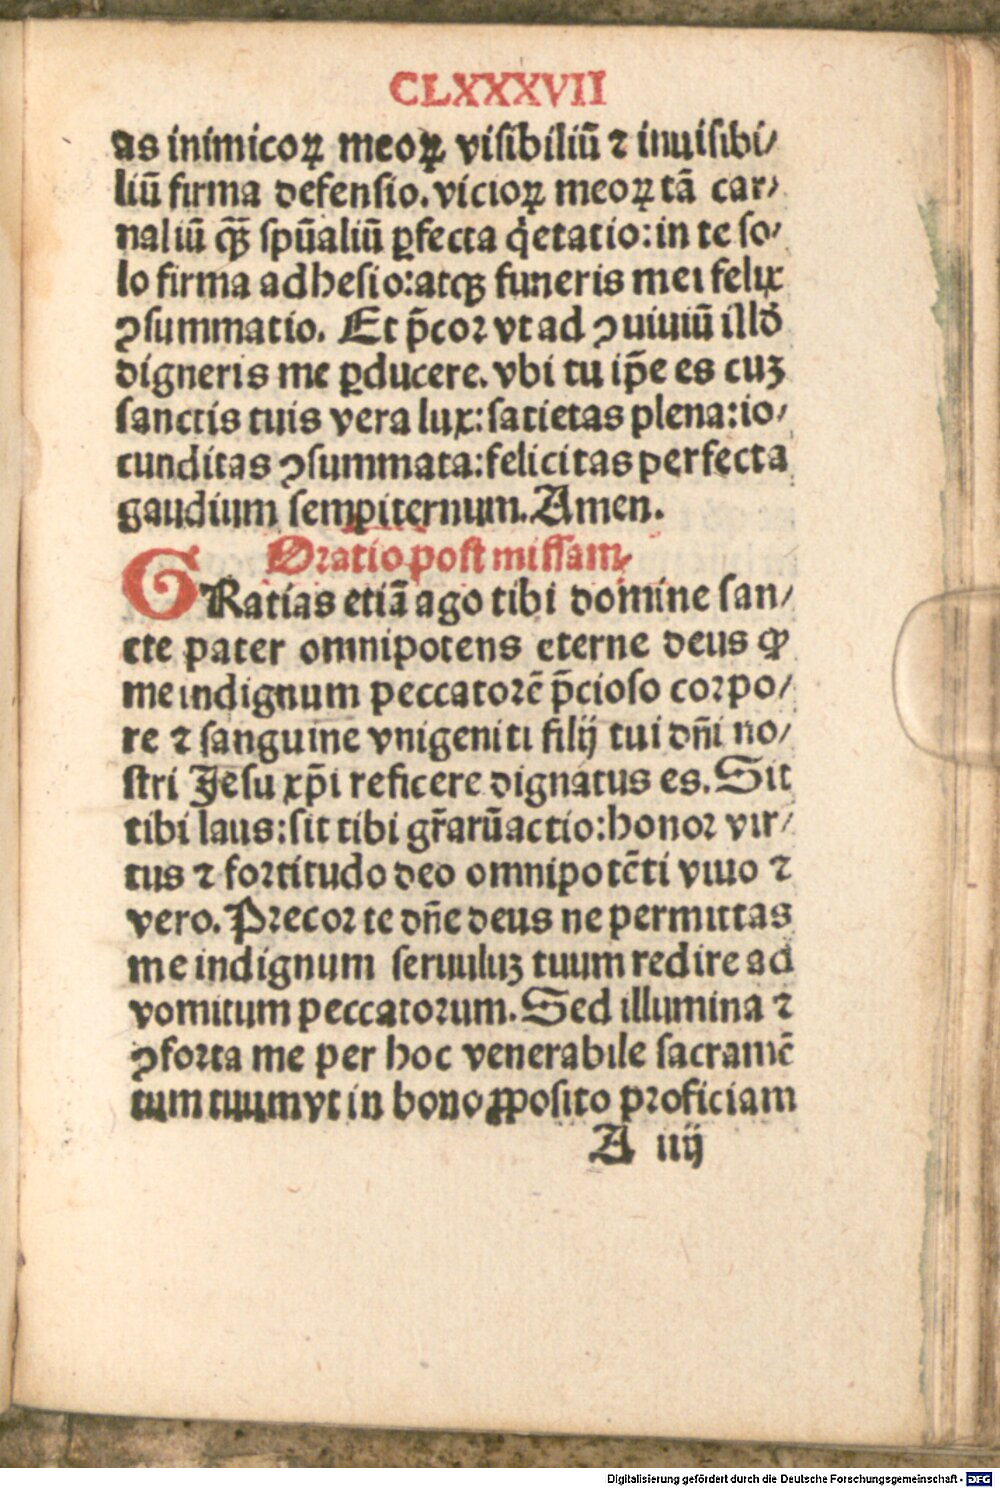 CLXXXVII
as inimicoꝝ meoꝝ visibiliū ⁊ inuisibi/
liū firma defensio. vicioꝝ meoꝝ tā car/
naliū qꝫ̄ spūaliū ꝑfecta q̇etatio: in te so/
lo firma adhesio: atqꝫ funeris mei felix
ꝯsummatio. Et p̄cor vt ad ꝯuiuiū illḋ
digneris me ꝑducere. vbi tu ip̄e es cuꝫ
sanctis tuis vera lux: satietas plena: io/
cunditas ꝯsummata: felicitas perfecta
gaudium sempiternum. Amen.
Oratio post missam.
GRatias etiā ago tibi domine san/
cte pater omnipotens eterne deus ꝙ
me indignum peccatorē p̄cioso corpo/
re ⁊ sanguine vnigeniti filij tui dn̄i no/
stri Jesu xp̄i reficere dignatus es. Sit
tibi laus: sit tibi gr̄arū actio: honor vir/
tus ⁊ fortitudo deo omnipotēti viuo ⁊
vero. Precor te dn̄e deus ne permittas
me indignum seruuluꝫ tuum redire ad
vomitum peccatorum. Sed illumina ⁊
ꝯforta me per hoc venerabile sacramē
tum tuum vt in bono ꝓposito proficiam
A iiij
Digitalisierung gefördert durch die Deutsche Forschungsgemeinschaft - DFG